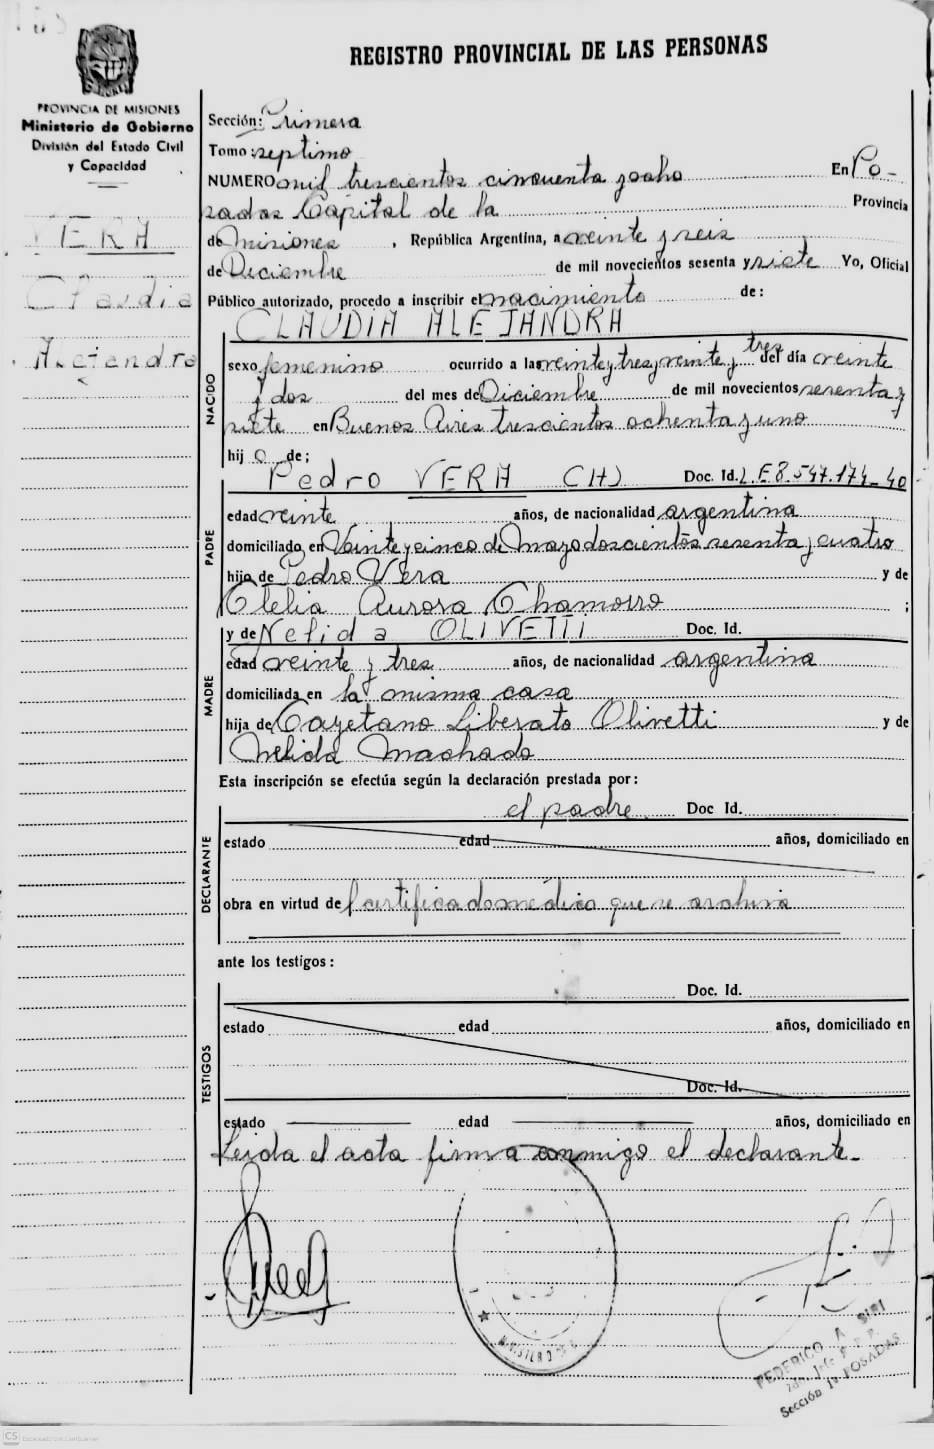 REGISTRO PROVINCIAL DE LAS PERSONAS
PROVINCIA DE MISIONES
Ministerio de Gobierno
División del Estado Civil
y Capacidad
VERA
Claudia
Alejandra
Sección: Primera
Tomo: septimo
NUMERO mil trescientos cincuenta y ocho En Po-
sadas Capital de la Provincia
de Misiones, República Argentina, a veinte y seis
de Diciembre de mil novecientos sesenta y siete Yo, Oficial
Público autorizado, procedo a inscribir el nacimiento de:
CLAUDIA ALEJANDRA
NACIDO
sexo femenino ocurrido a las veinte y tres y veinte y tres del día veinte
y dos del mes de Diciembre de mil novecientos sesenta y
siete en Buenos Aires trescientos ochenta y uno
hij a de;
PADRE
Pedro VERA (H) Doc. Id. L.E 8.547.174-40
edad veinte años, de nacionalidad argentina
domiciliado en Veinte y cinco de Mayo doscientos sesenta y cuatro
hijo de Pedro Vera y de
Clelia Aurora Chamorro ;
MADRE
y de Nelida OLIVETTI Doc. Id.
edad veinte y tres años, de nacionalidad argentina
domiciliada en la misma casa
hija de Cayetano Liberato Olivetti y de
Nelida Machado
Esta inscripción se efectúa según la declaración prestada por:
DECLARANTE
el padre Doc Id.
estado edad años, domiciliado en
obra en virtud del certificado médico que se archiva
ante los testigos:
TESTIGOS
Doc. Id.
estado edad años, domiciliado en
Doc. Id.
estado edad años, domiciliado en
Leida el acta firma conmigo el declarante-
MINISTERIO DE G
FEDERICO A. SIRI
Sección 1ª POSADAS
CS